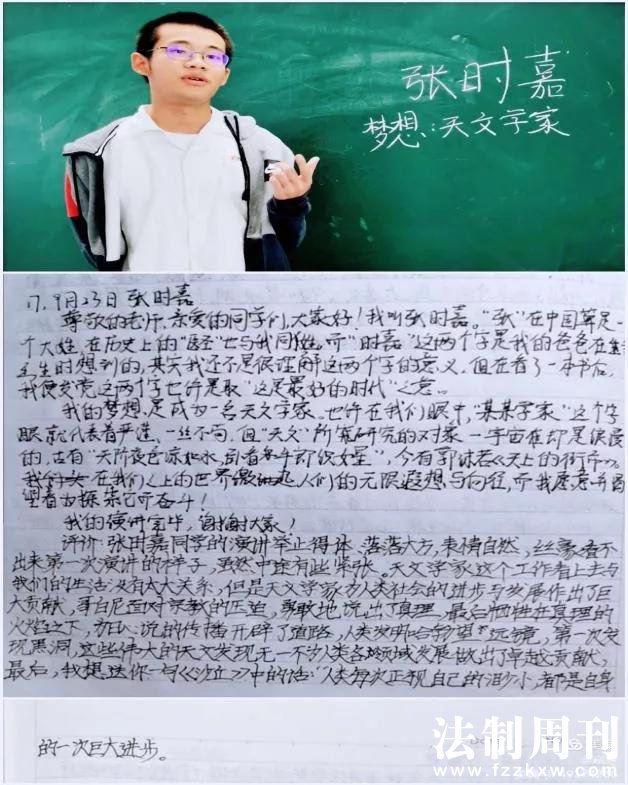 张时嘉
梦想:天文学家
17. 9月23日 张时嘉
尊敬的老师,亲爱的同学们,大家好!我叫张时嘉。"张"在中国算是一
个大姓,在历史上的 也与我同姓,而"时嘉"这两个字是我的爸爸在
生时想到的,其实我还不是很理解这两个字的意义,但在看了一本书后,
我便发觉这两个字也许是取"这是最好的时代"之意。
我的梦想是成为一名天文学家,也许在我们眼中,"某某学家"这个字
眼就代表着严谨、一丝不苟,但"天文"所需研究的对象—宇宙在却是浪漫
的,古有"天阶夜色凉如水,卧看牵牛即织女星",今有郭沫若《天上的街市》。
在我们 上的世界 人们的无限遐想与向往,而我愿意
望着为探索它而奋斗!
我的演讲完毕,谢谢大家!
评价:张时嘉同学的演讲举止得体、落落大方,表情自然,丝毫看不
出来第一次演讲的样子,虽然中途有些紧张。天文学家这个工作看上去与
我们的生活没有太大关系,但是天文学家为人类社会的进步与发展作出了巨
大贡献,哥白尼面对宗教的压迫,勇敢地说出了真理,最后牺牲在真理的
火焰之下,为日心说的传播开辟了道路,人类发明哈勃望远镜,第一次发
现黑洞,这些伟大的天文发现无一不为人类各领域发展做出了卓越贡献,
最后,我想送你一句《沙丘》中的话:"人类每次正视自己的渺小,都是自身
的一次巨大进步。
法制周刊
www.fzzkxw.com